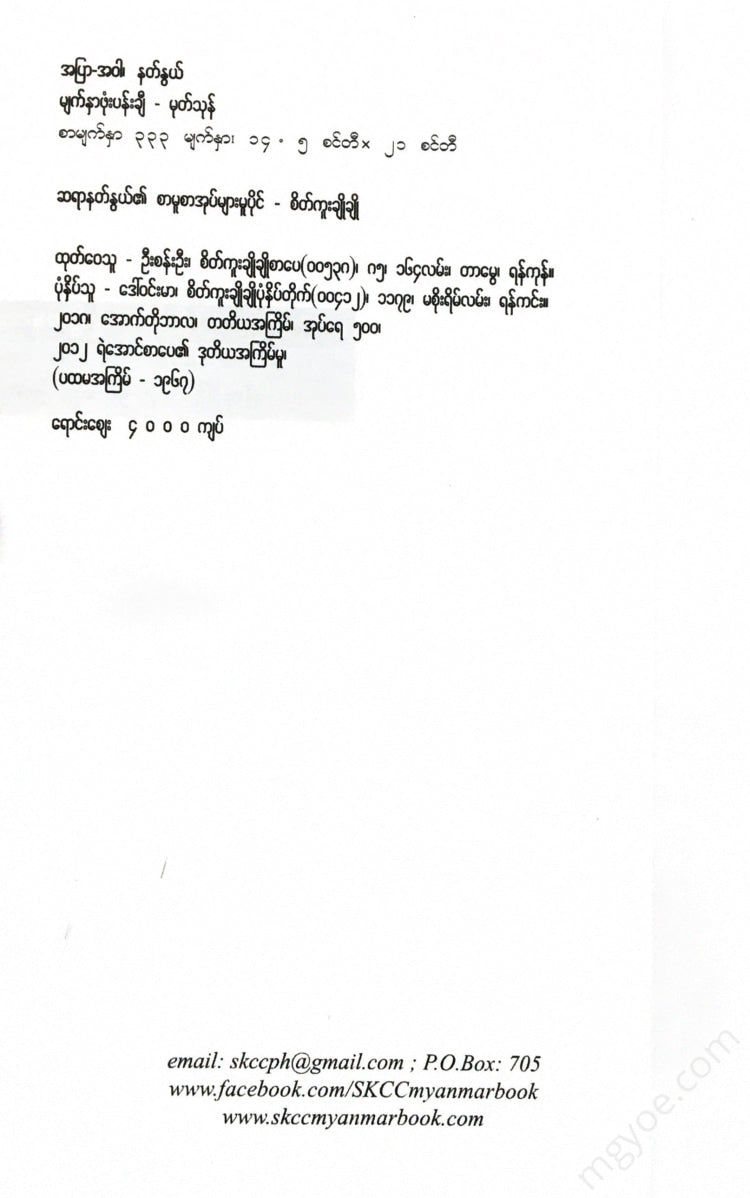 အပြာ-အဝါ၊ နတ်နွယ်
မျက်နှာဖုံးပန်းချီ - မုတ်သုန်
စာမျက်နှာ ၃၃၃ မျက်နှာ၊ ၁၄ . ၅ စင်တီ× ၂၁ စင်တီ
ဆရာနတ်နွယ်၏ စာမူစာအုပ်များမူပိုင် - စိတ်ကူးချိုချို
ထုတ်ဝေသူ - ဦးစန်းဦး၊ စိတ်ကူးချိုချိုစာပေ(၀၀၅၃၈)၊ ၈၅၊ ၁၆၄လမ်း၊ တာမွေ၊ ရန်ကုန်။
ပုံနှိပ်သူ - ဒေါ်ဝင်းမာ၊ စိတ်ကူးချိုချိုပုံနှိပ်တိုက်(၀၀၄၁၂)၊ ၁၁၇၉၊ မစိုးရိမ်လမ်း၊ ရန်ကင်း။
၂၀၁၈၊ အောက်တိုဘာလ၊ တတိယအကြိမ်၊ အုပ်ရေ ၅၀၀၊
၂၀၁၂ ရဲအောင်စာပေ၏ ဒုတိယအကြိမ်မူ၊
(ပထမအကြိမ် - ၁၉၆၇)
ရောင်းဈေး ၄ ၀ ၀ ၀ ကျပ်
email: skccph@gmail.com ; P.O.Box: 705
www.facebook.com/SKCCmyanmarbook
www.skccmyanmarbook.com
mgyoe.com